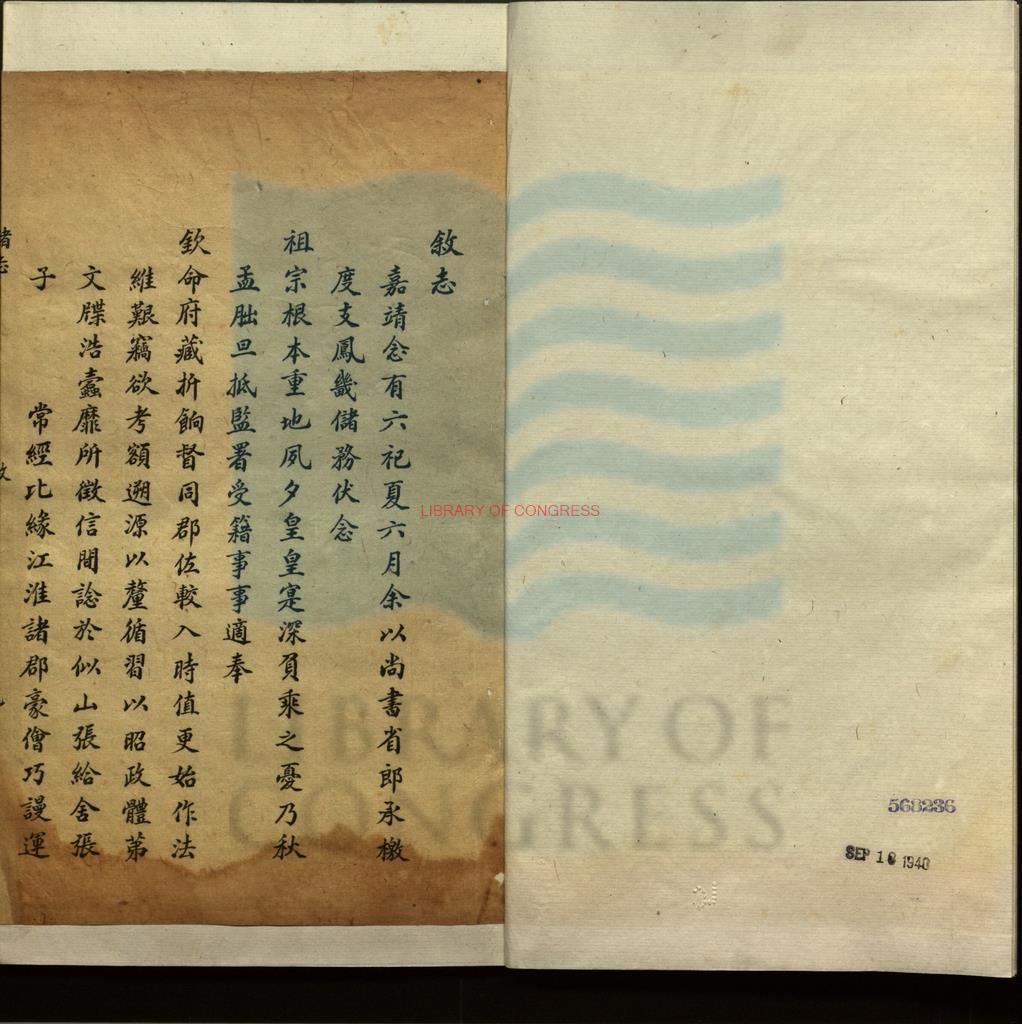 敘志
嘉靖念有六祀夏六月余以尚書省郎承檄
度支鳳畿儲務伏念
祖宗根本重地夙夕皇皇寔深負乘之憂乃秋
孟朏旦抵監署受籍事事適奉
欽命府藏折餉督同郡佐較入時值更始作法
維艱竊欲考額遡源以釐循習以昭政體第
文牒浩蠹靡所徵信間諗於似山張給舍張
子常經比緣江淮諸郡豪儈巧謾運
568236
SEP 18 1940
LIBRARY OF CONGRESS
LIBRARY OF
CONGRESS